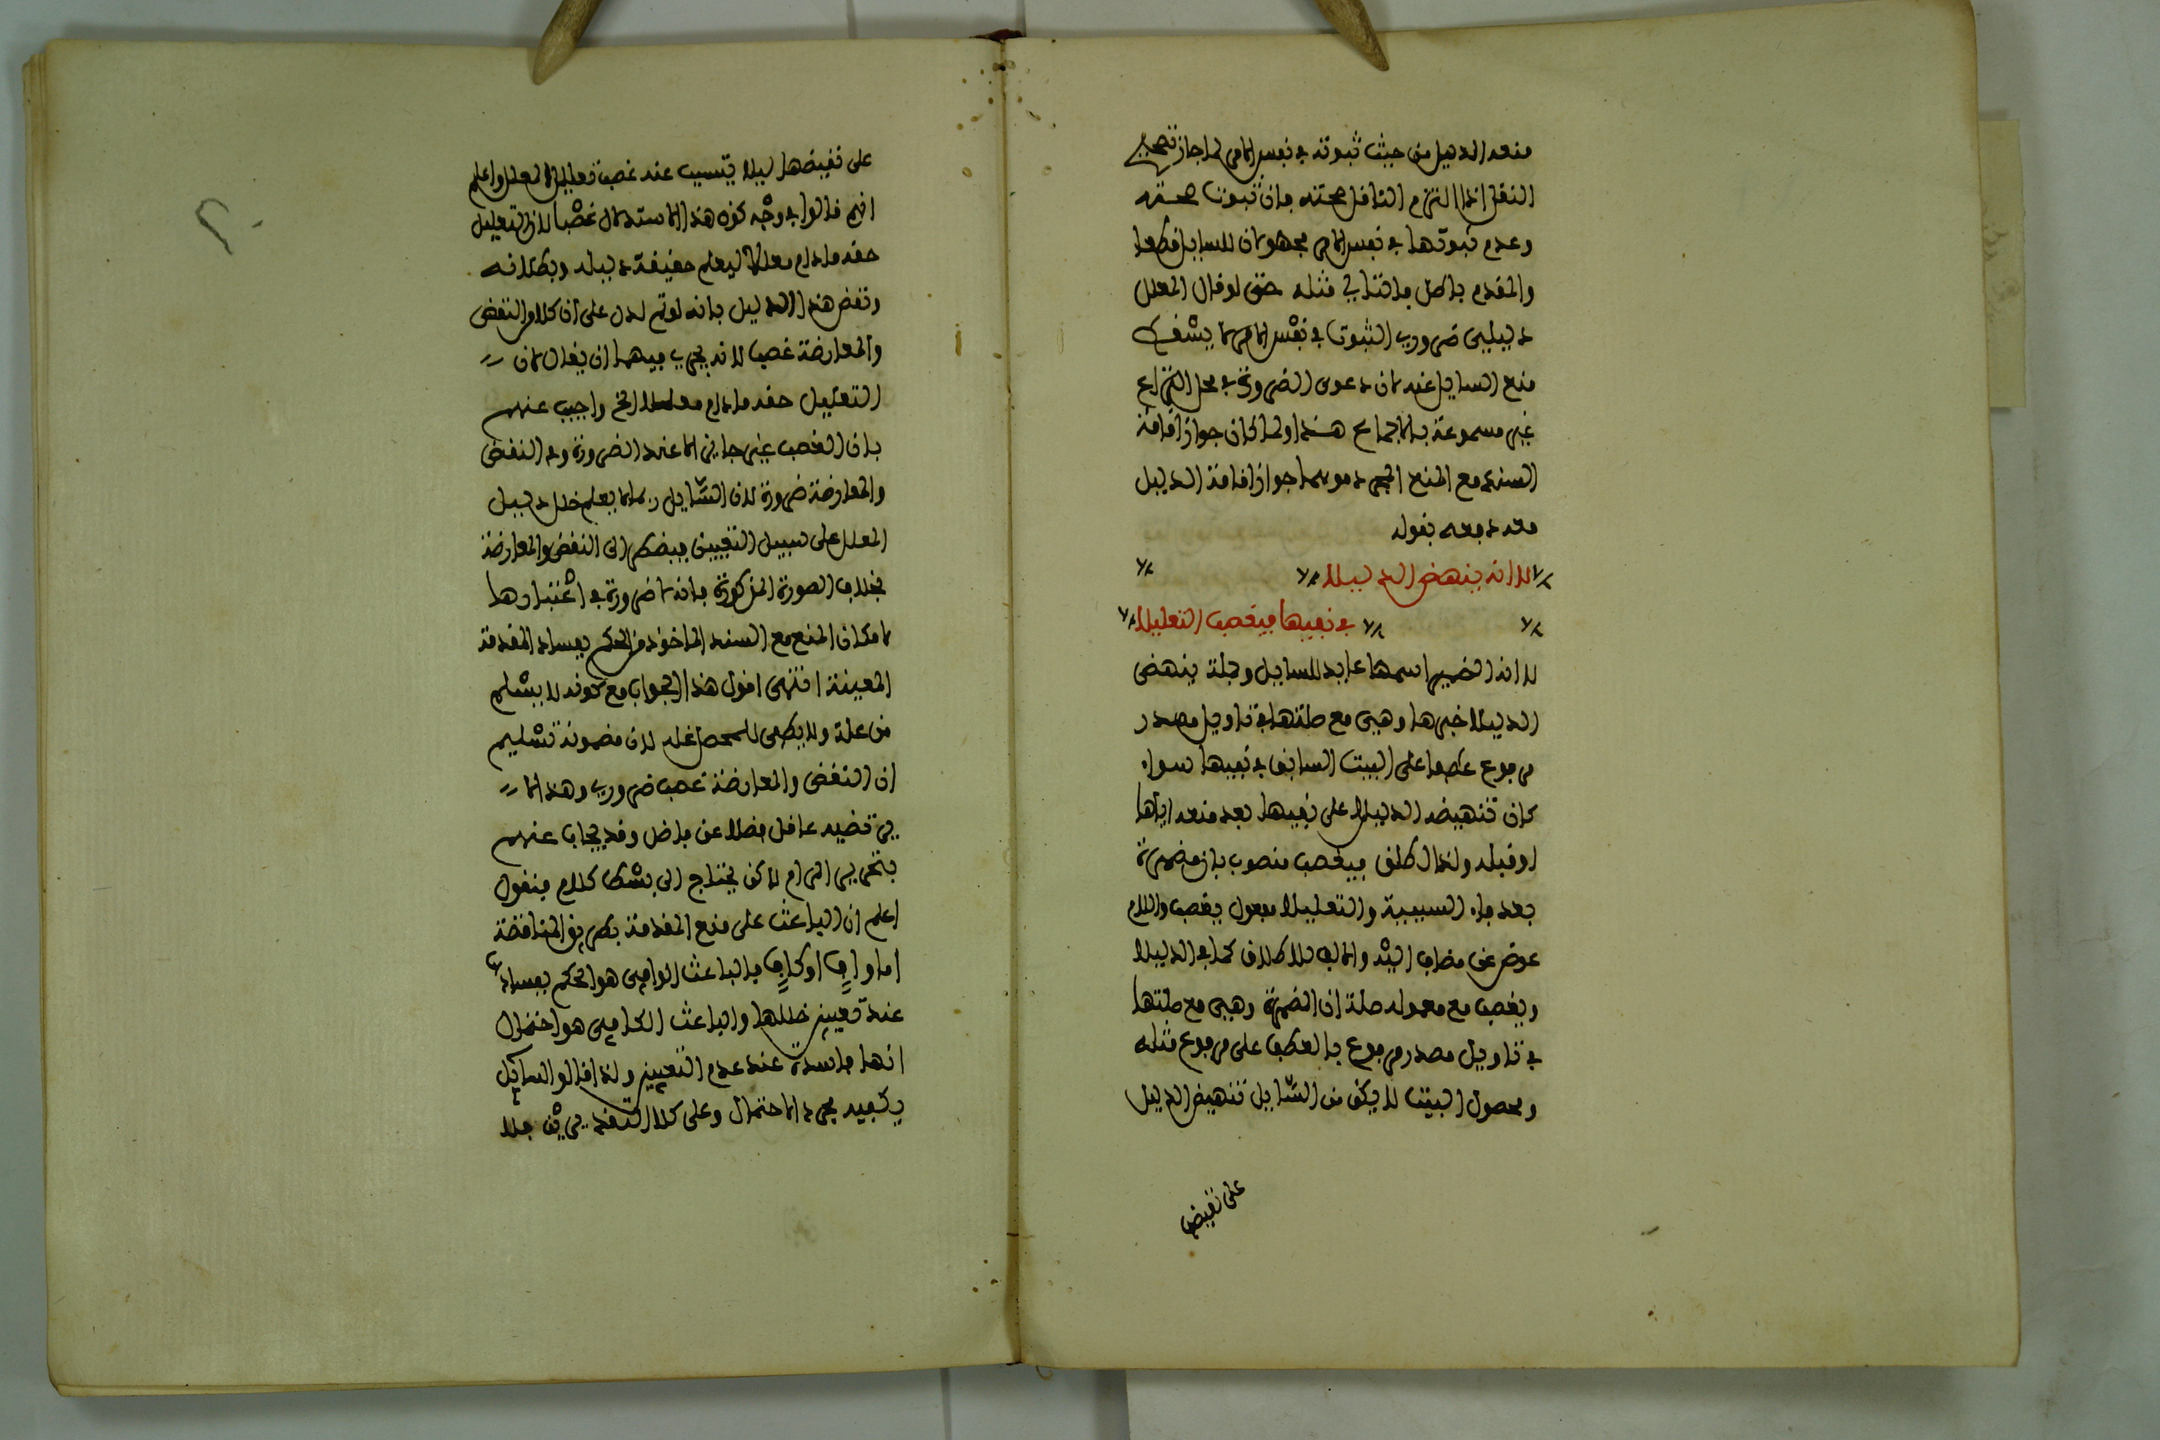 منعه الدليل من حيث ثبوته في نفس الامر لما جاز تصحيح
النقل اذا التزم الناقل صحته فان ثبوت صحته
وعدم ثبوتها في نفس الامر مجهولان للسايل قطعا
والمقدم باطل فالتالي مثله حتى لو قال المعلل
دليلي ضروري الثبوت في نفس الامر لا يسقط
منع السايل عنه لان دعوى الضرورة في محل النزاع
غير مسموعة بالاجماع هذا ولما كان جواز اقامة
السند مع المنع المجرد موهما جواز اقامة الدليل
معه دفعه بقوله
لا انه ينهض الدليلا
في نفيها فيغصب التعليلا
لا انه الضمير اسمها عايد للسايل وجملة ينهض
الدليلا خبرها وهي مع صلتها في تاويل مصدر
مرفوع عطفا على البيت السابق في نفيها سواء
كان تنهيضه الدليل على نفيها بعد منعه اياها
او قبله ولذا اطلق فيغصب منصوب بان مضمرة
بعد فاء السببية والتعليلا مفعول يغصب واللام
عوض عن مضاف اليه والالف للاطلاق كما في الدليلا
ويغصب مع معموله صلة ان المضمرة وهي مع صلتها
في تاويل مصدر مرفوع بالعطف على مرفوع مثله
ومحصول البيت لا يكن من السايل تنهيض الدليل
على نقيض
على نقيضها ليلا يتسبب عنه غصب تعليل المعلل واعلم
انهم قالوا في وجه كون هذا الاستدلال غصبا لان التعليل
حقه مادام معللا ليعلم حقيقة دليله وبطلانه
ونقض هذا الدليل بانه لو تم لدل على ان كلا من النقض
والمعارضة غصب لانه يجري فيهما ان يقال لان
التعليل حقه مادام معللا الخ واجيب عنهم
بان الغصب غير جايز الا عند الضرورة وفي النقض
والمعارضة ضرورة لان السايل ربما لا يعلم خلل دليل
المعلل على سبيل التعيين فيضطر الى النقض والمعارضة
بخلاف الصورة المذكورة فانه لا ضرورة في اعتبارها
لامكان المنع مع السند الماخوذ من الحكم بفساد المقدمة
المعينة انتهى اقول هذا الجواب مع كونه لا يسلم
من علة ولا يطفي للمحصل غلة لان مضمونه تسليم
ان النقض والمعارضة غصب ضروري وهذا لا
يرتضيه عاقل فضلا عن فاضل وقد يجاب عنهم
بتحرير المرام لاكن يحتاج الى بسط كلام فنقول
اعلم ان الباعث على منع المقدمة بطريق المناقضة
اما واف او كاف فالباعث الوافي هو الحكم بفسادها
عند تعيين خللها والباعث الكافي هو احتمال
انها فاسدة عند عدم التعيين ولذا قالوا السايل
يكفيه مجرد الاحتمال وعلى كلا التقديرين فلا